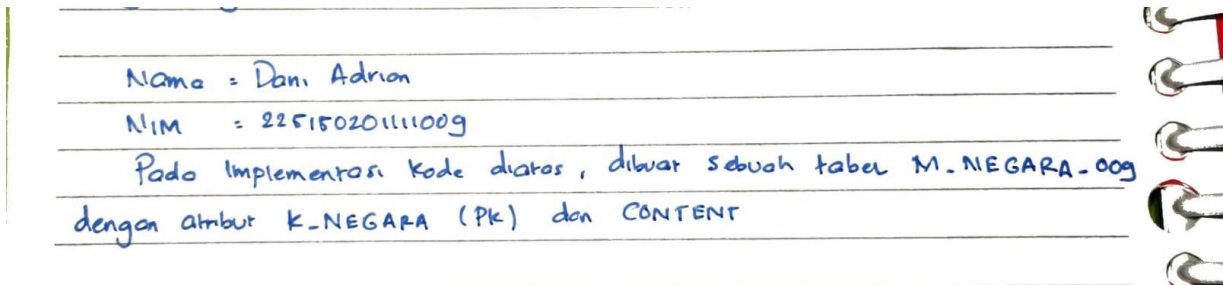 Nama : Dani Adrian
NIM : 225150201111009
Pada Implementasi kode diatas, dibuat sebuah tabel M_NEGARA_009
dengan atribut K_NEGARA (PK) dan CONTENT